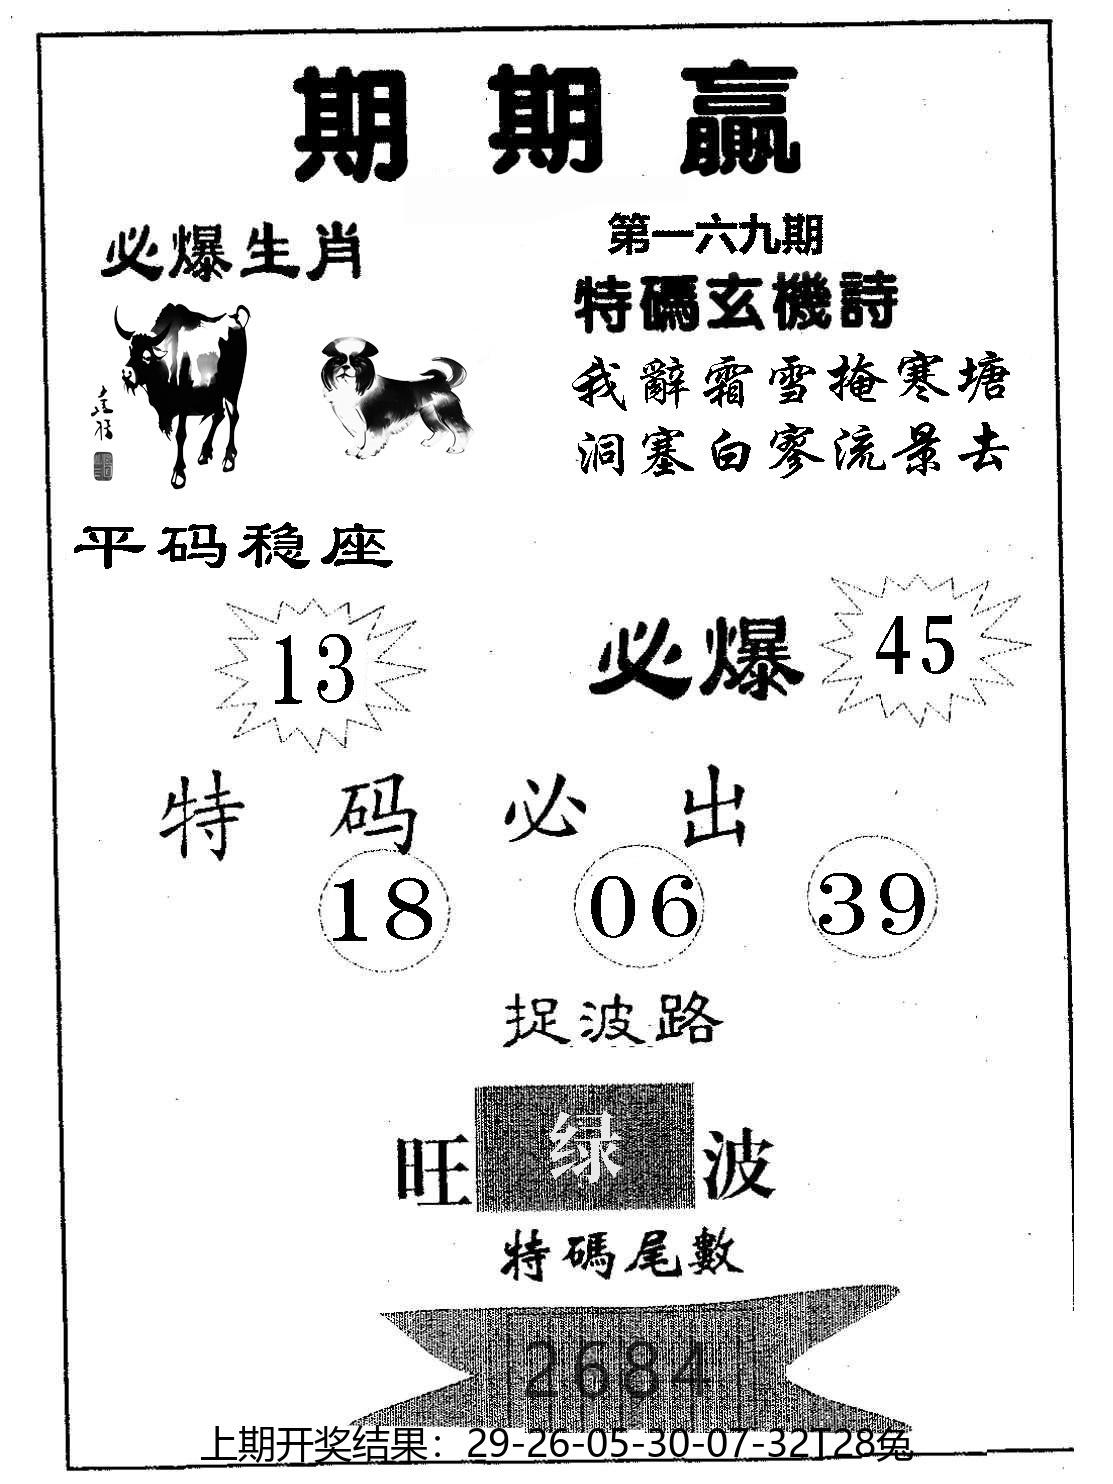 期期贏
必爆生肖
第一六九期
特碼玄機詩
我辭霜雪掩寒塘
洞塞白寥流景去
平码稳座
13
必爆 45
特码必出
18 06 39
捉波路
旺 绿 波
特碼尾數
2684
上期开奖结果：29-26-05-30-07-32T28兔